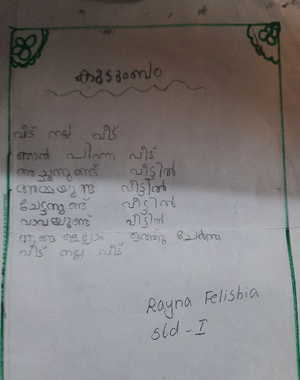 കുടുംബം
വീട് നല്ല വീട്
ഞാൻ പിറന്ന വീട്
അച്ഛനുണ്ട് വീട്ടിൽ
അമ്മയുണ്ട് വീട്ടിൽ
ചേട്ടനുണ്ട് വീട്ടിൽ
വാവയുണ്ട് വീട്ടിൽ
എല്ലാം ഒത്തു ചേർന്ന
വീട് നല്ല വീട്
Rayna Felishia
std - I